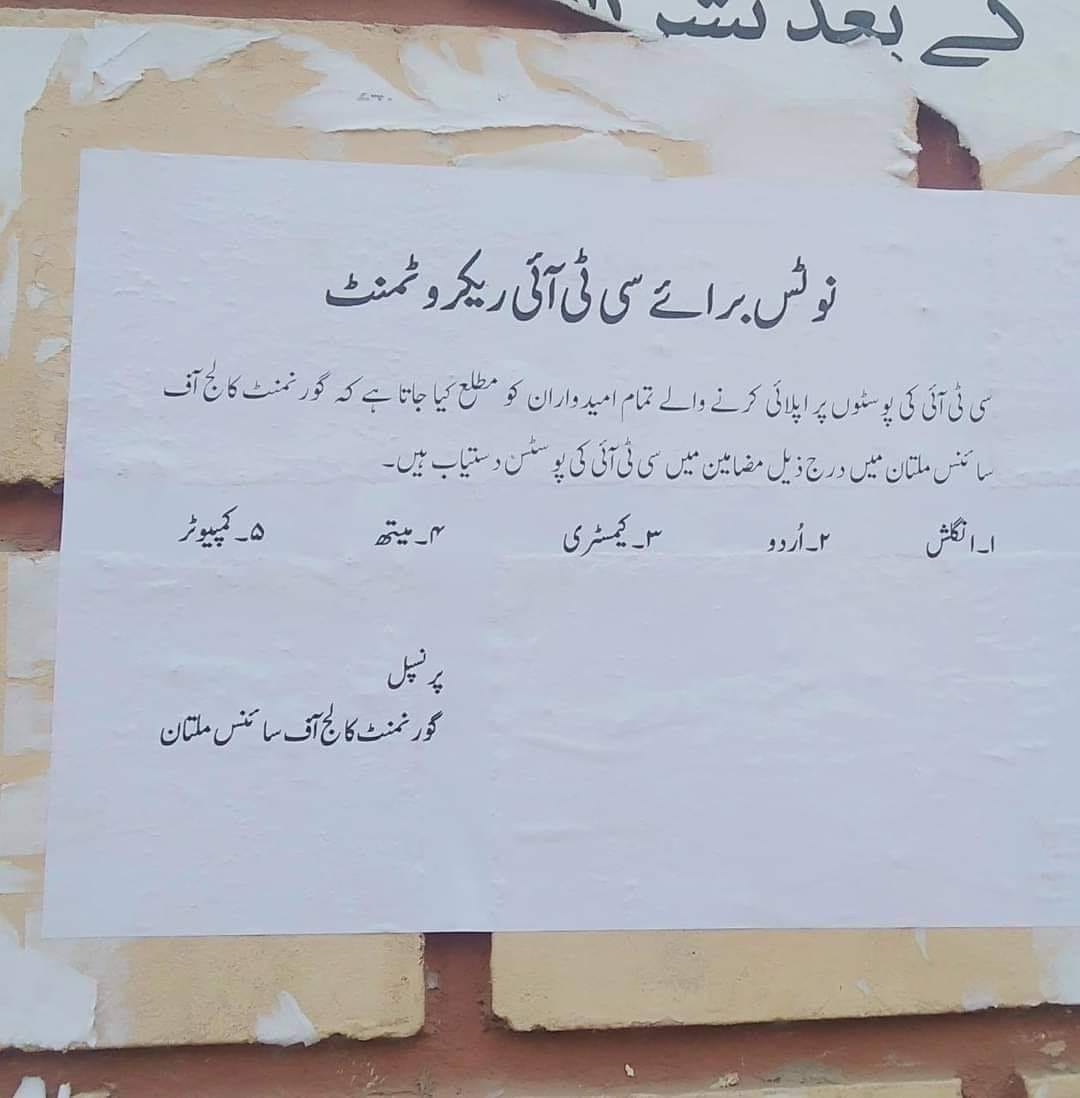 کے بعد
نوٹس برائے سی ٹی آئی ریکروٹمنٹ
سی ٹی آئی کی پوسٹوں پر اپلائی کرنے والے تمام امیدواران کو مطلع کیا جاتا ہے کہ گورنمنٹ کالج آف
سائنس ملتان میں درج ذیل مضامین میں سی ٹی آئی کی پوسٹس دستیاب ہیں۔
۱۔انگلش ۲۔اُردو ۳۔کیمسٹری ۴۔میتھ ۵۔کمپیوٹر
پرنسپل
گورنمنٹ کالج آف سائنس ملتان